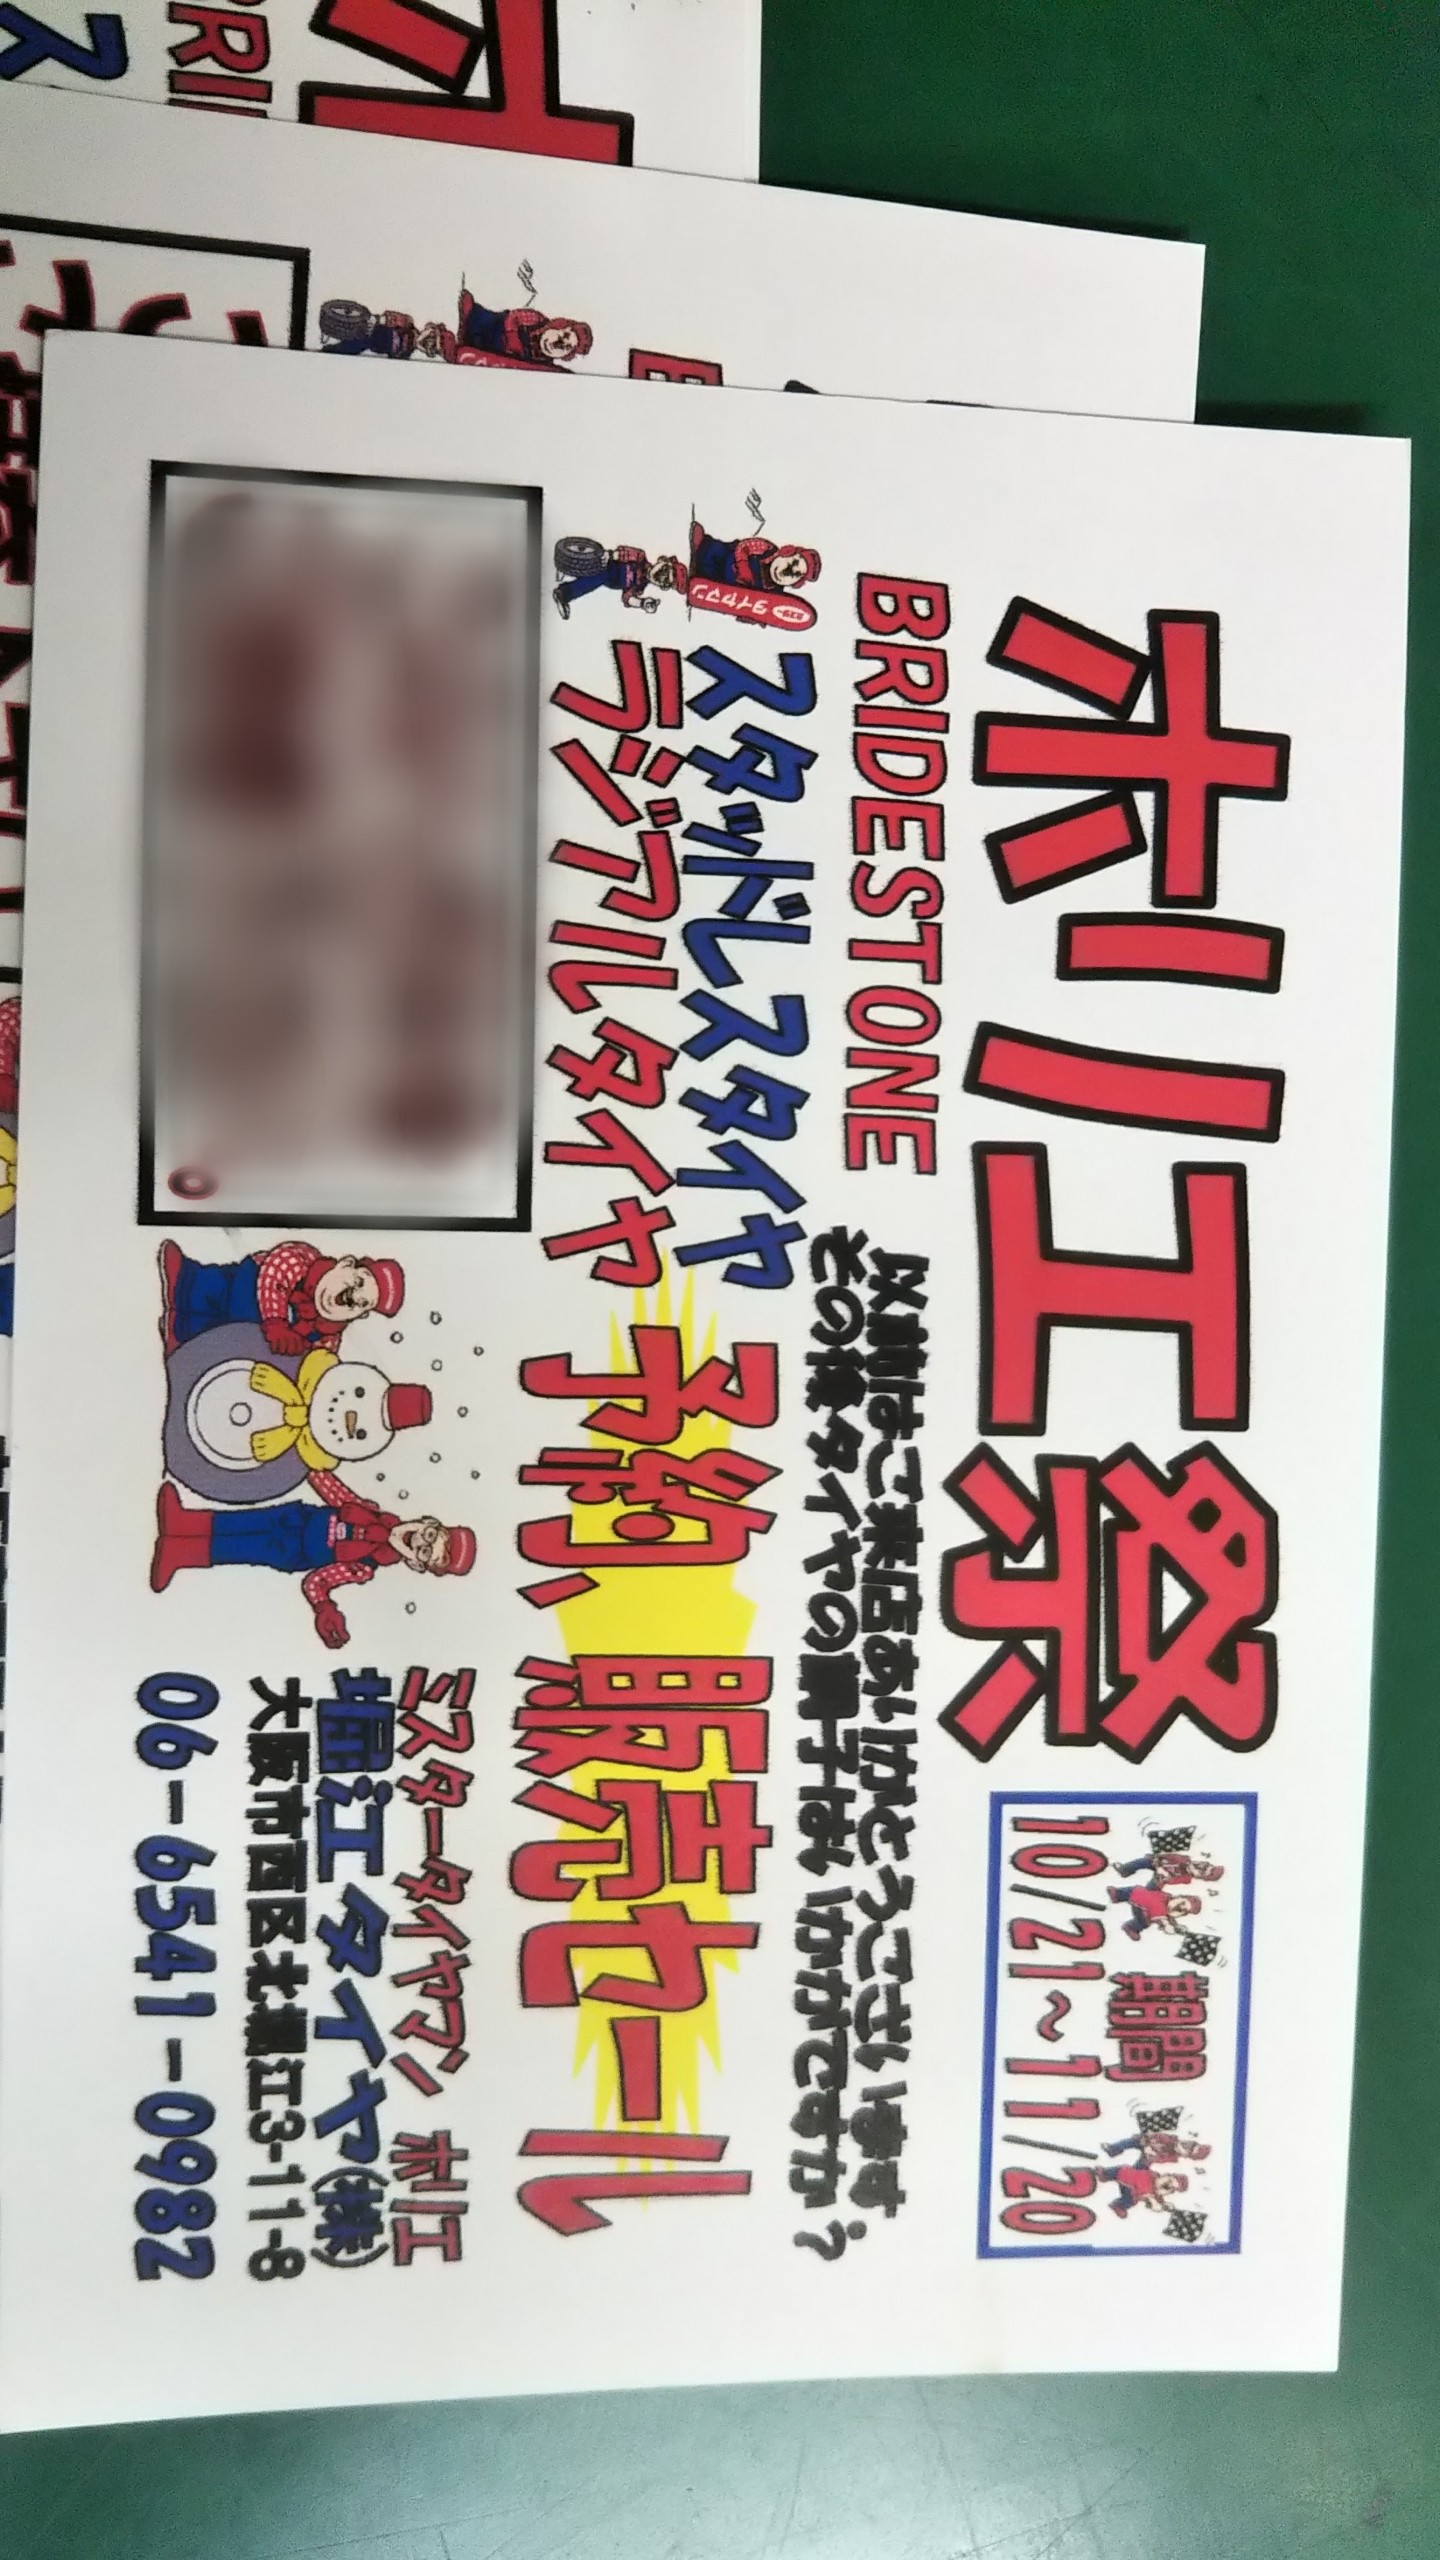 ホリエ祭
期間
10/21~11/20
BRIDESTONE
以前はご来店ありがとうございます
その後タイヤの調子はいかがですか?
スタッドレスタイヤ
ラジアルタイヤ
予約、販売セール
タイヤマン
ミスタータイヤマン ホリエ
堀江タイヤ(株)
大阪市西区北堀江3-11-8
06-6541-0982